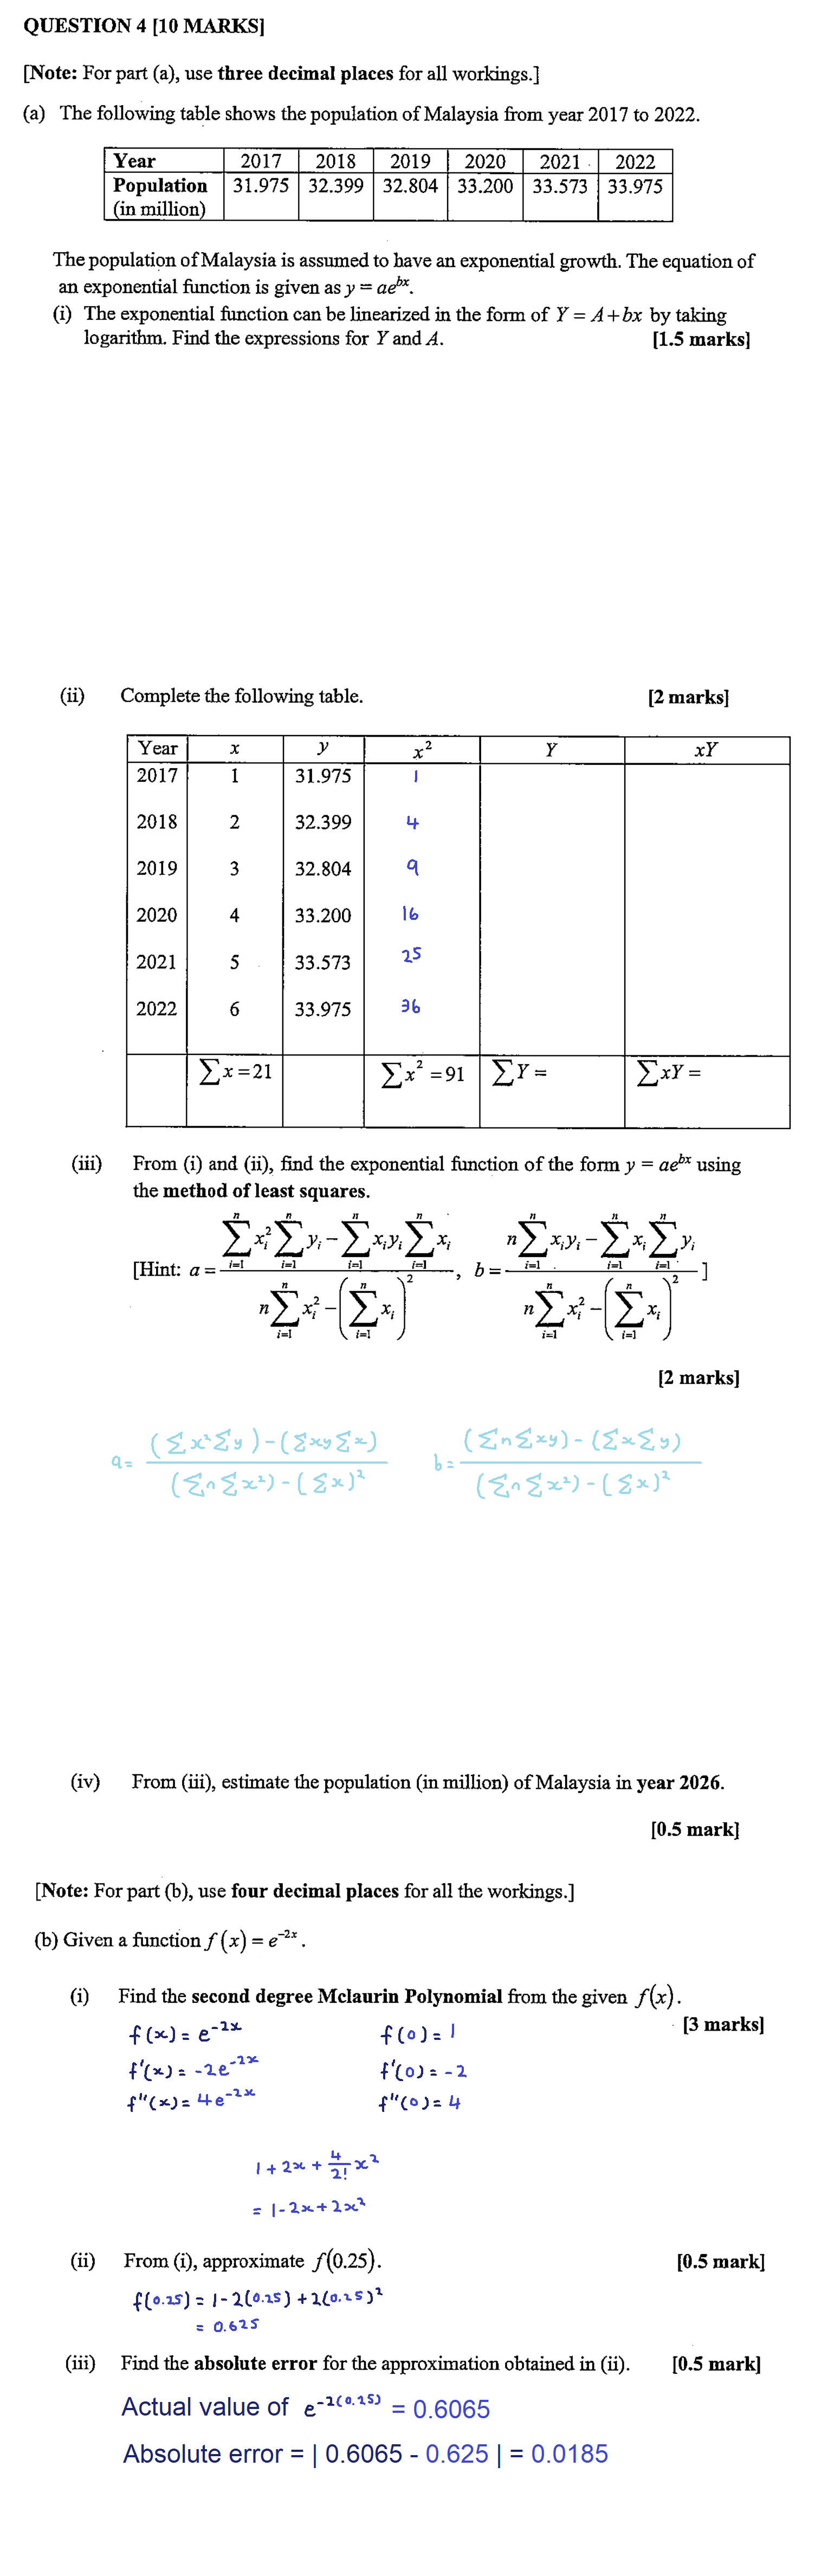 QUESTION 4 [10 MARKS]
[Note: For part (a), use three decimal places for all workings.]
(a) The following table shows the population of Malaysia from year 2017 to 2022.
Year 2017 2018 2019 2020 2021 2022
Population (in million) 31.975 32.399 32.804 33.200 33.573 33.975
The population of Malaysia is assumed to have an exponential growth. The equation of
an exponential function is given as y = ae^{bx}.
(i) The exponential function can be linearized in the form of Y = A+bx by taking
logarithm. Find the expressions for Y and A. [1.5 marks]
(ii) Complete the following table. [2 marks]
Year x y x² Y xY
2017 1 31.975 1
2018 2 32.399 4
2019 3 32.804 9
2020 4 33.200 16
2021 5 33.573 25
2022 6 33.975 36
∑x=21 ∑x² =91 ∑Y = ∑xY =
(iii) From (i) and (ii), find the exponential function of the form y = ae^{bx} using
the method of least squares.
[Hint: a = \frac{\sum_{i=1}^{n} x_i^2 \sum_{i=1}^{n} y_i - \sum_{i=1}^{n} x_i y_i \sum_{i=1}^{n} x_i}{n\sum_{i=1}^{n} x_i^2 - \left(\sum_{i=1}^{n} x_i\right)^2}, b = \frac{n\sum_{i=1}^{n} x_i y_i - \sum_{i=1}^{n} x_i \sum_{i=1}^{n} y_i}{n\sum_{i=1}^{n} x_i^2 - \left(\sum_{i=1}^{n} x_i\right)^2} ]
[2 marks]
a = \frac{(∑x²∑y) - (∑xy∑x)}{(∑n∑x²) - (∑x)²} b = \frac{(∑n∑xy) - (∑x∑y)}{(∑n∑x²) - (∑x)²}
(iv) From (iii), estimate the population (in million) of Malaysia in year 2026.
[0.5 mark]
[Note: For part (b), use four decimal places for all the workings.]
(b) Given a function f(x) = e^{-2x}.
(i) Find the second degree Mclaurin Polynomial from the given f(x).
[3 marks]
f(x) = e^{-2x} f(0) = 1
f'(x) = -2e^{-2x} f'(0) = -2
f''(x) = 4e^{-2x} f''(0) = 4
1 + 2x + \frac{4}{2!}x²
= 1 - 2x + 2x²
(ii) From (i), approximate f(0.25). [0.5 mark]
f(0.25) = 1 - 2(0.25) + 2(0.25)²
= 0.625
(iii) Find the absolute error for the approximation obtained in (ii). [0.5 mark]
Actual value of e^{-2(0.25)} = 0.6065
Absolute error = | 0.6065 - 0.625 | = 0.0185